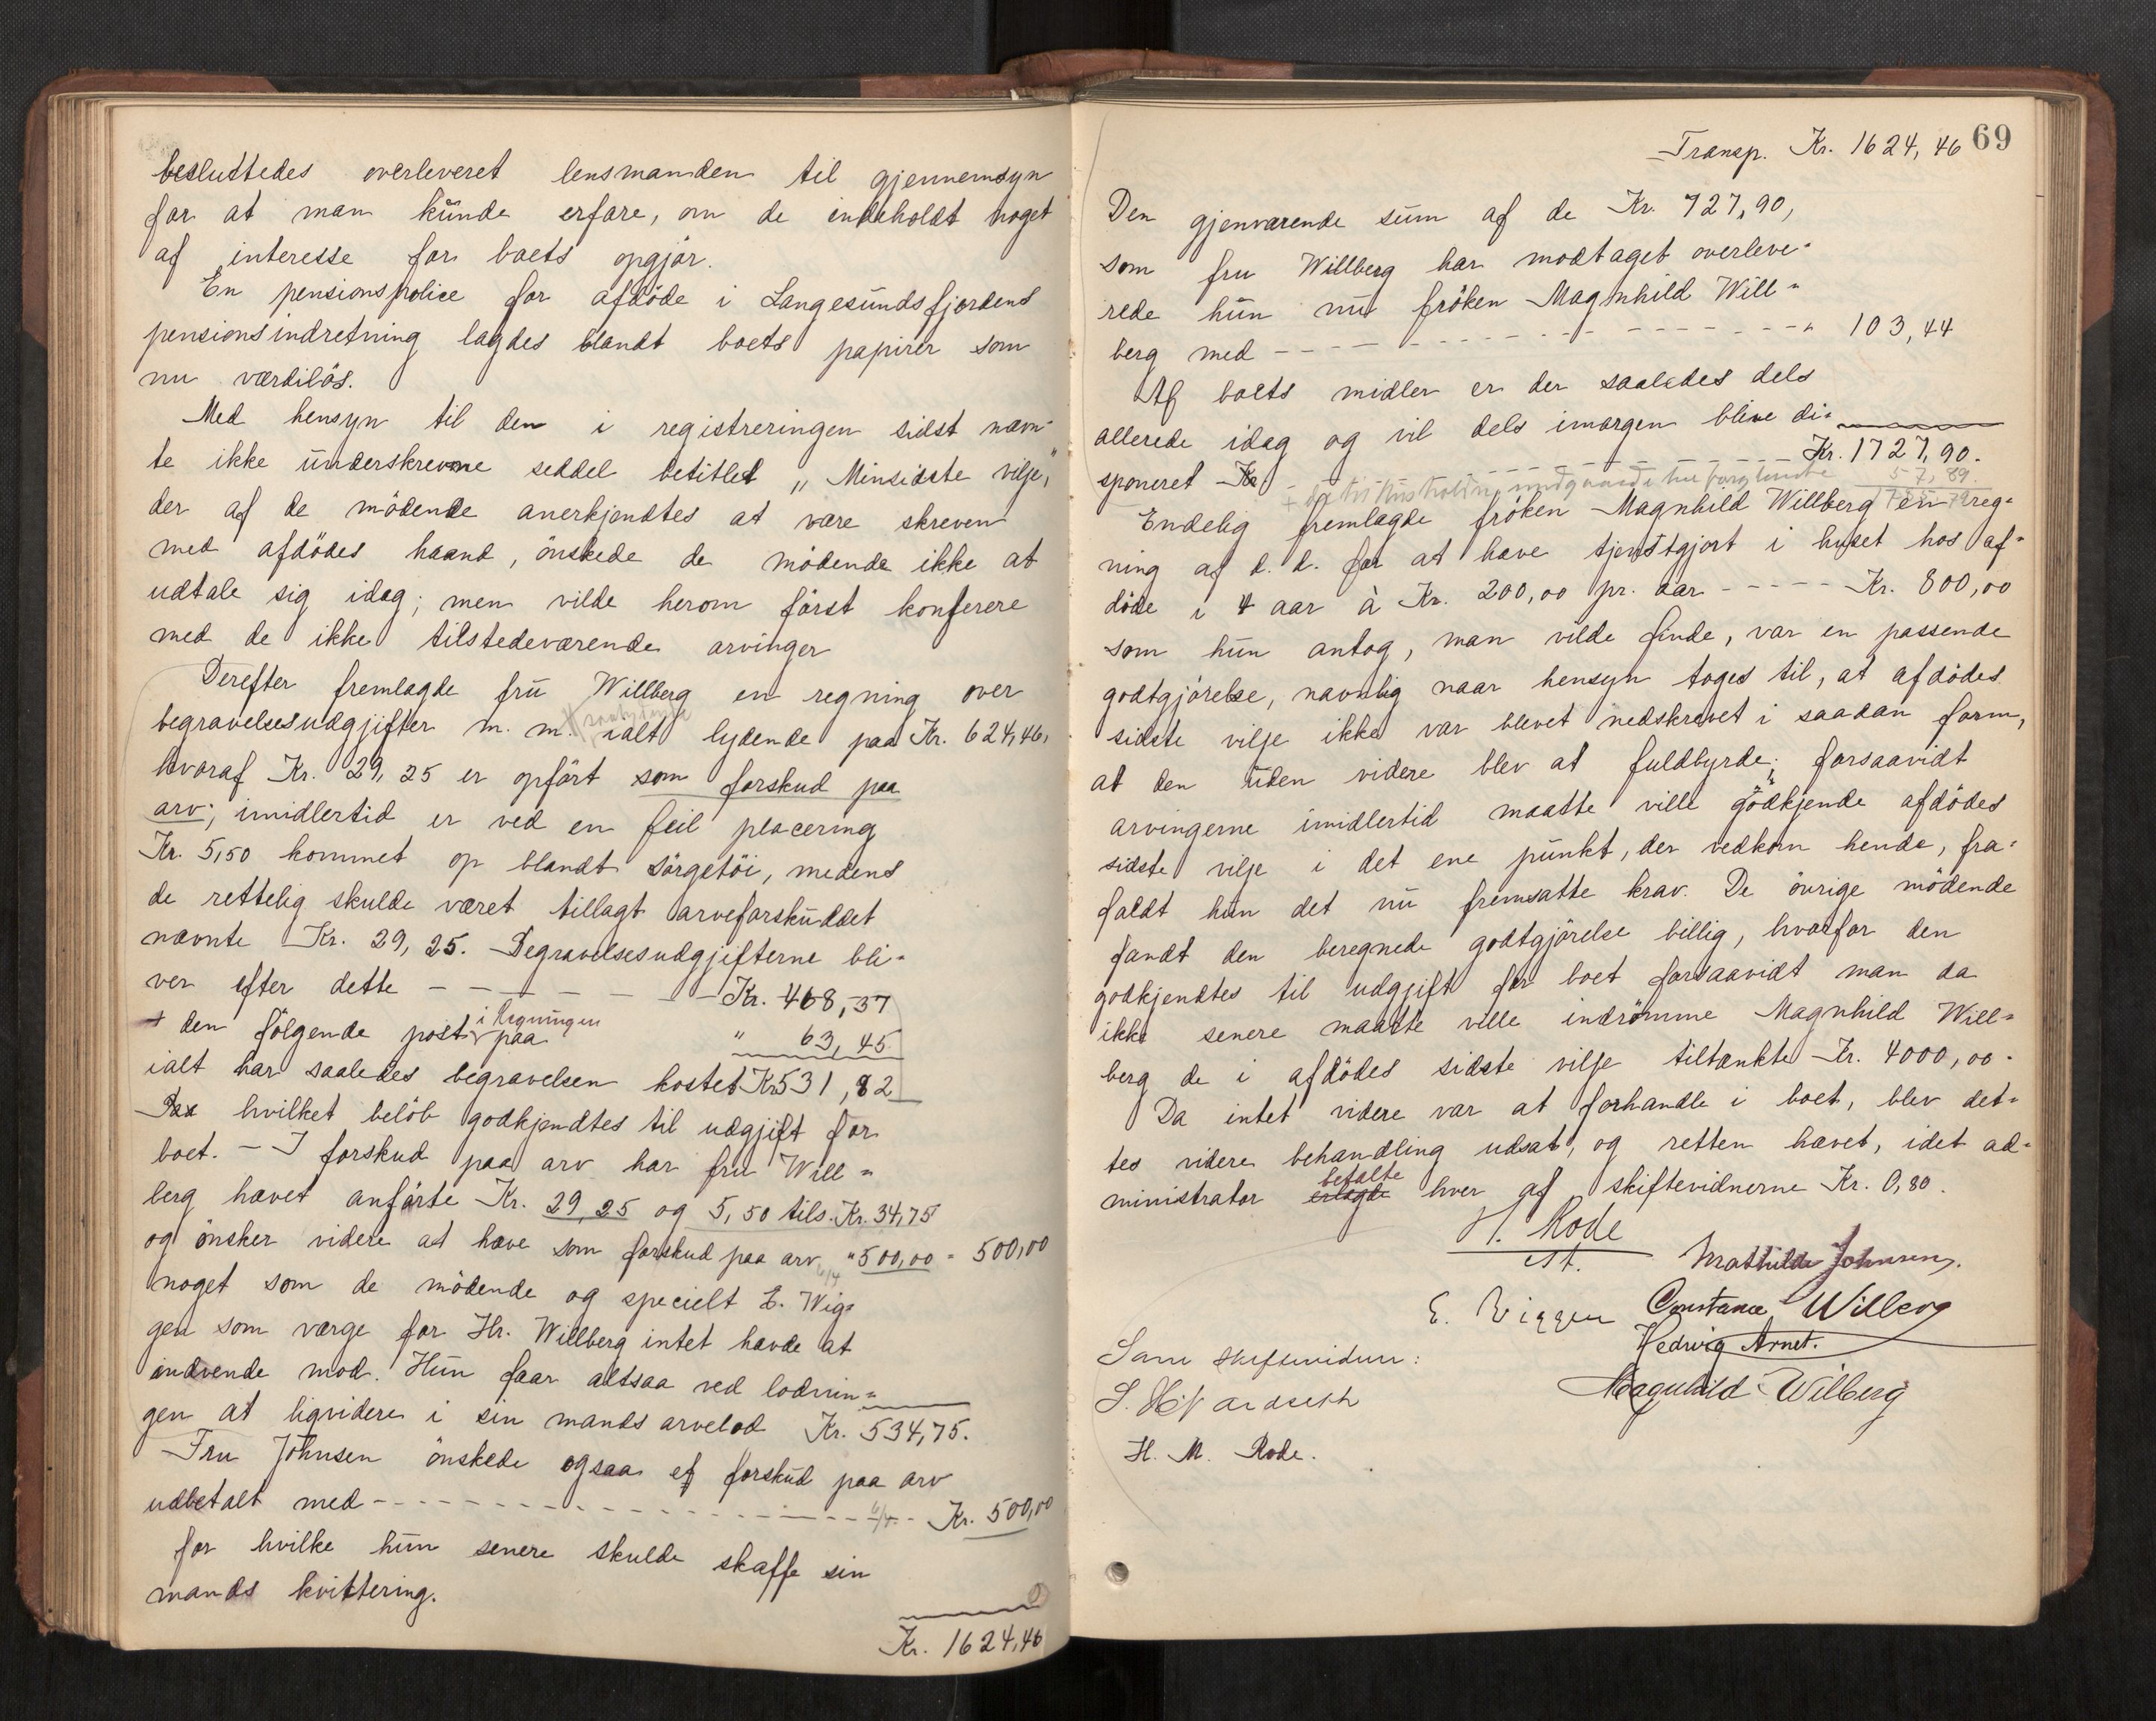 besluttedes overleveret lensmanden til gjennemsyn
for at man kunde erfare, om de indeholdt noget
af interesse for boets opgjør.
En pensionspolice for afdöde i Langesundsfjordens
pensionsindretning lagdes blandt boets papirer som
nu værdilös.
Med hensyn til den i registreringen sidst nævn-
te ikke underskrevne seddel betitlet „Minsidste vilje,"
der af de mödende anerkjendtes at være skreven
med afdödes haand, önskede de mödende ikke at
udtale sig idag; men vilde herom först konferere
med de ikke tilstedeværende arvinger
Derefter fremlagde fru Willberg en regning over
begravelsesudgjifter m. m. ialt lydende paa Kr. 624,46,
hvoraf Kr. 29,25 er opfört som forskud paa
arv; imidlertid er ved en feil placering
Kr. 5,50 kommet op blandt sörgetöi, medens
de rettelig skulde været tillagt arveforskuddet
nævnte Kr. 29,25. Begravelsesudgjifterne bli-
ver efter dette - - - - - - - Kr. 468,37
+ den fölgende post i regningen paa " 63,45
ialt har saaledes begravelsen kostet Kr 531,82
hvilket belöb godkjendtes til udgjift for
boet. - I forskud paa arv har fru Will=
berg hævet anförte Kr. 29,25 og 5,50 tils. Kr. 34,75
og önsker videre at hæve som forskud paa arv " 500,00 = 500,00
noget som de mödende og specielt E. Wig=
gen som værge for Hr. Willberg intet havde at
indvende mod. Hun faar altsaa ved lodnin=
gen at liqvidere i sin mands arvelod Kr. 534,75.
Fru Johnsen önskede ogsaa et forskud paa arv
udbetalt med - - - - - - - - 6/4 - Kr. 500,00
for hvilke hun senere skulde skaffe sin
mands kvittering.
Kr. 1624,46
Transp. Kr. 1624,46 69
Den gjenværende sum af de Kr. 727,90,
som fru Willberg har modtaget overleve-
rede hun nu fröken Magnhild Will=
berg med - - - - - - - - - " 103,44
Af boets midler er der saaledes dels
allerede idag og vil dels imorgen blive di=
sponeret Kr - - - - - - - Kr. 1727,90.
57,89
Endelig fremlagde fröken Magnhild Willberg en reg=
ning af d. d. for at have tjenstgjort i huset hos af=
döde i 4 aar à Kr. 200,00 pr. aar - - - - - Kr. 800,00
som hun antog, man vilde finde, var en passende
godtgjörelse, navnlig naar hensyn toges til, at afdödes
sidste vilje ikke var blevet nedskrevet i saadan form,
at den uden videre blev at fuldbyrde; forsaavidt
arvingerne imidlertid maatte ville godkjende afdödes
sidste vilje i det ene punkt, der vedkom hende, fra=
faldt hun det nu fremsatte krav. De övrige mödende
fandt den beregnede godtgjörelse billig, hvorfor den
godkjendtes til udgjift for boet forsaavidt man da
ikke senere maatte ville indrömme Magnhild Will=
berg de i afdödes sidste vilje tiltænkte Kr. 4000,00.
Da intet videre var at forhandle i boet, blev det=
tes videre behandling udsat, og retten hævet, idet ad=
ministrator erlagde betalte hver af skiftevidnerne Kr. 0,80.
H. Rode
st. Mathilde Johnsen.
E. Wiggen Constance Willberg
Hedvig Arnet.
Som skiftevidner:
Magnhild Wilberg
H. M. Rode.